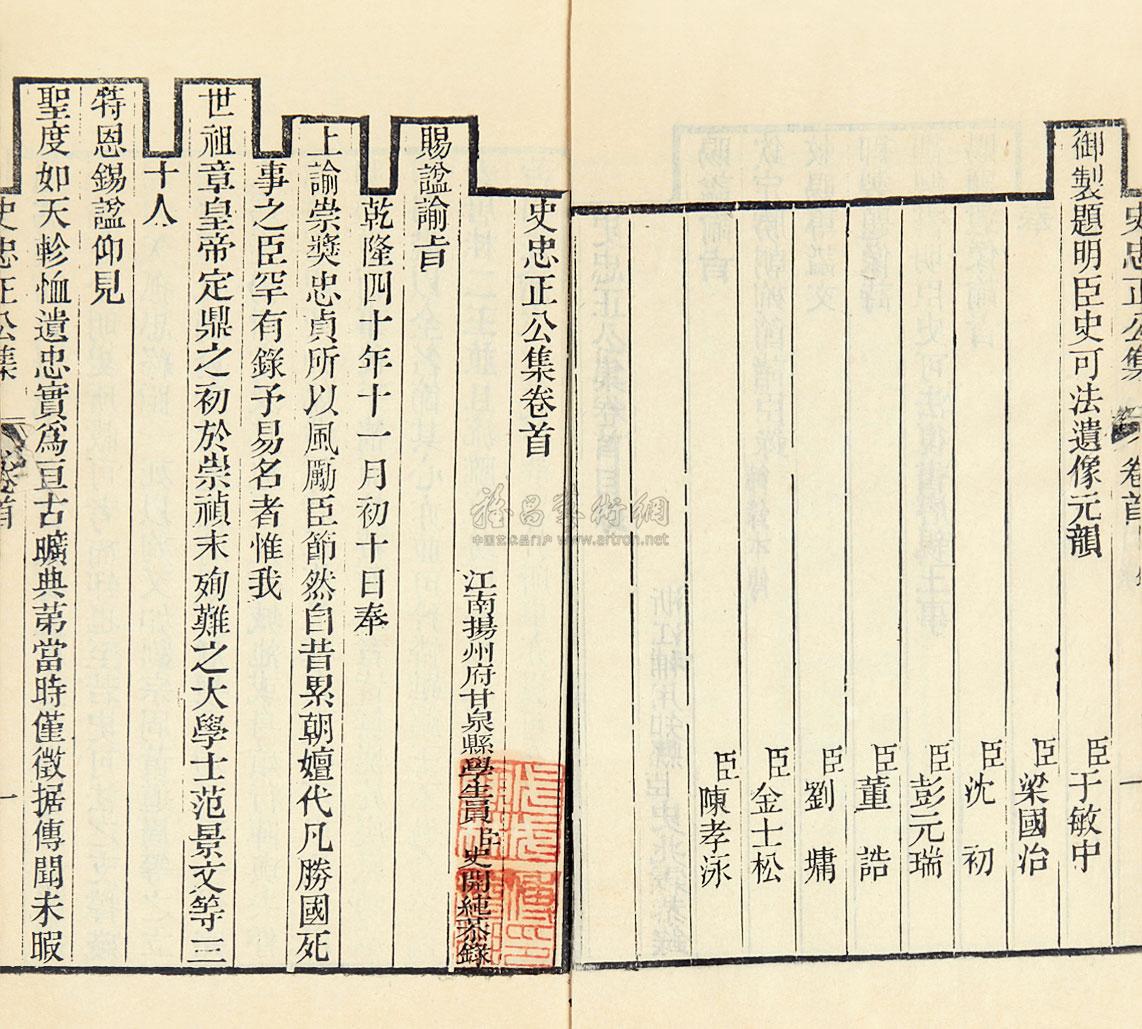 御製題明臣史可法遺像元韻
臣于敏中
臣梁國治
臣沈 初
臣彭元瑞
臣董 誥
臣劉 墉
臣金士松
臣陳孝泳
史忠正公集 卷首
史忠正公集卷首
江南揚州府甘泉縣學生員臣史開純恭錄
賜諡諭旨
乾隆四十年十一月初十日奉
上諭崇獎忠貞所以風勵臣節然自昔累朝嬗代凡勝國死
事之臣罕有錄予易名者惟我
世祖章皇帝定鼎之初於崇禎末殉難之大學士范景文等三
十人
特恩錫諡仰見
聖度如天軫恤遺忠實為亘古曠典第當時僅徵据傳聞未暇
史忠正公集 卷首 一
雅昌藝術網
中国艺术品门户 www.artron.net